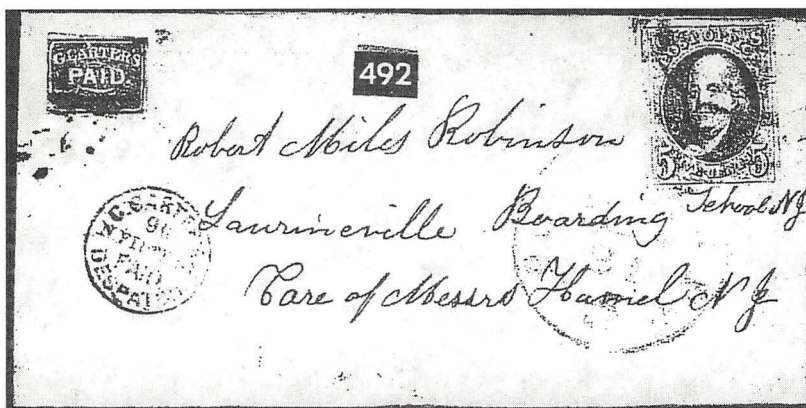 G. CARTER'S
PAID
492
POST OFFICE
5 5
Robert Miles Robinson
Laurineville Boarding School NJ
Care of Messrs Hamel NJ
PAID
DESPATCH